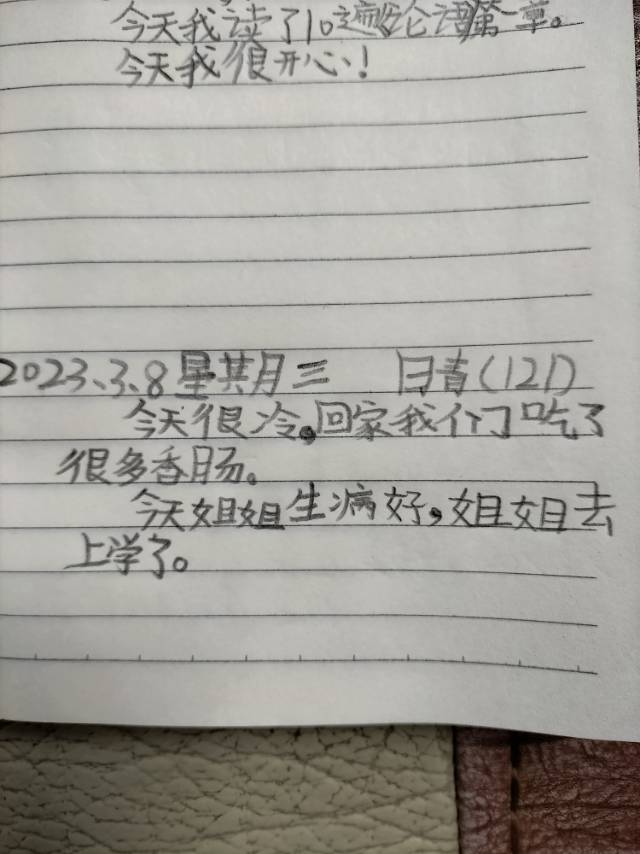 今天我读了10遍论语第一章。
今天我很开心！
2023.3.8星其月三 日青(121)
今天很冷。回家我们吃了
很多香肠。
今天姐姐生病好，姐姐去
上学了。